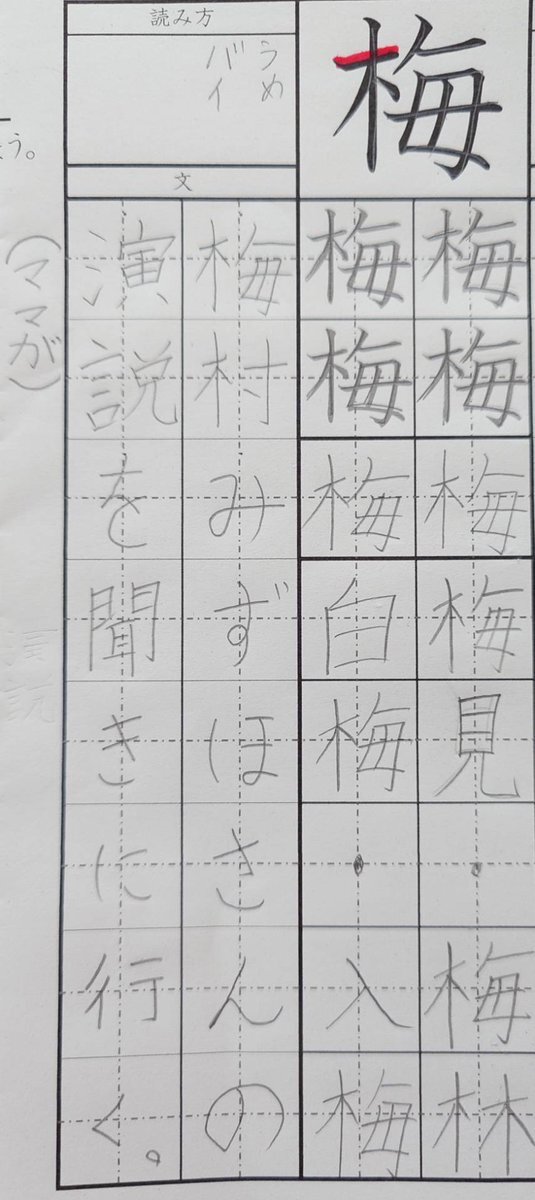 梅
梅梅梅梅見・梅林
梅梅梅白梅・入梅
読み方
うめ
バイ
文
梅村みずほさんの
演説を聞きに行く。
(ママが)
う。